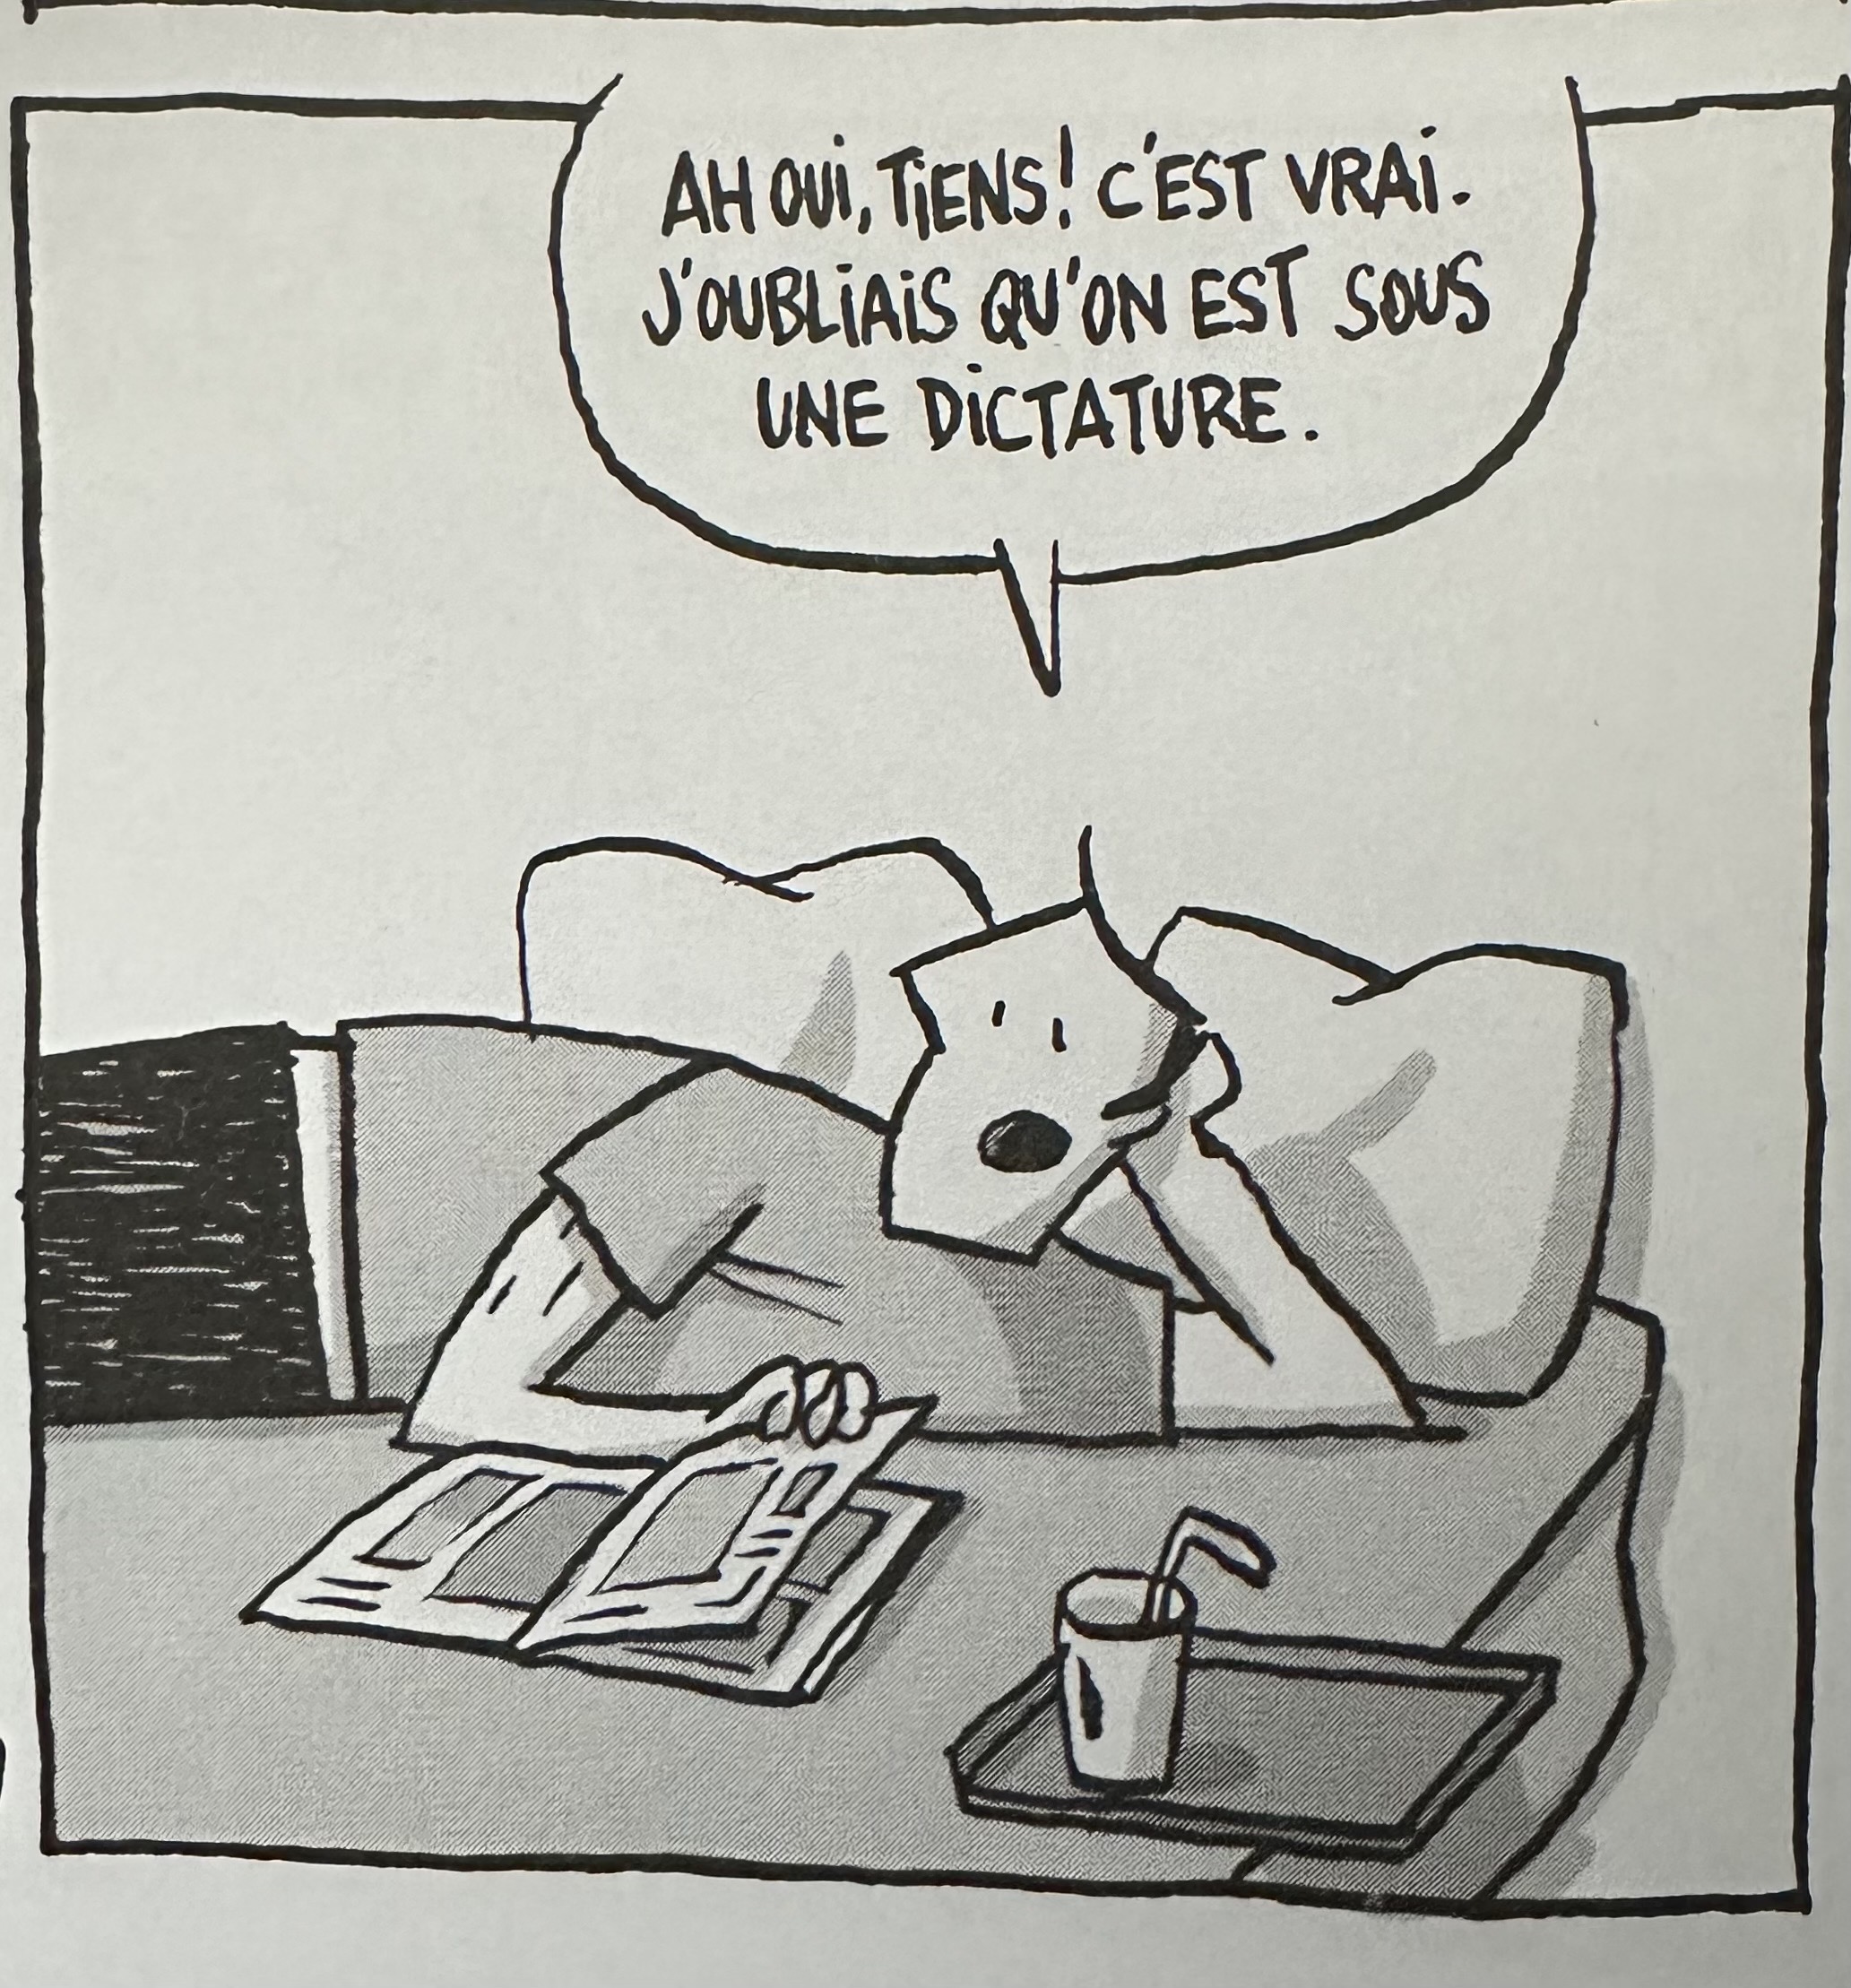 AH OUI, TIENS! C'EST VRAI.
J'OUBLIAIS QU'ON EST SOUS
UNE DICTATURE.